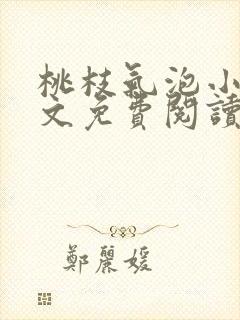 桃枝氣泡小
文免費閱讀
鄭麗媛